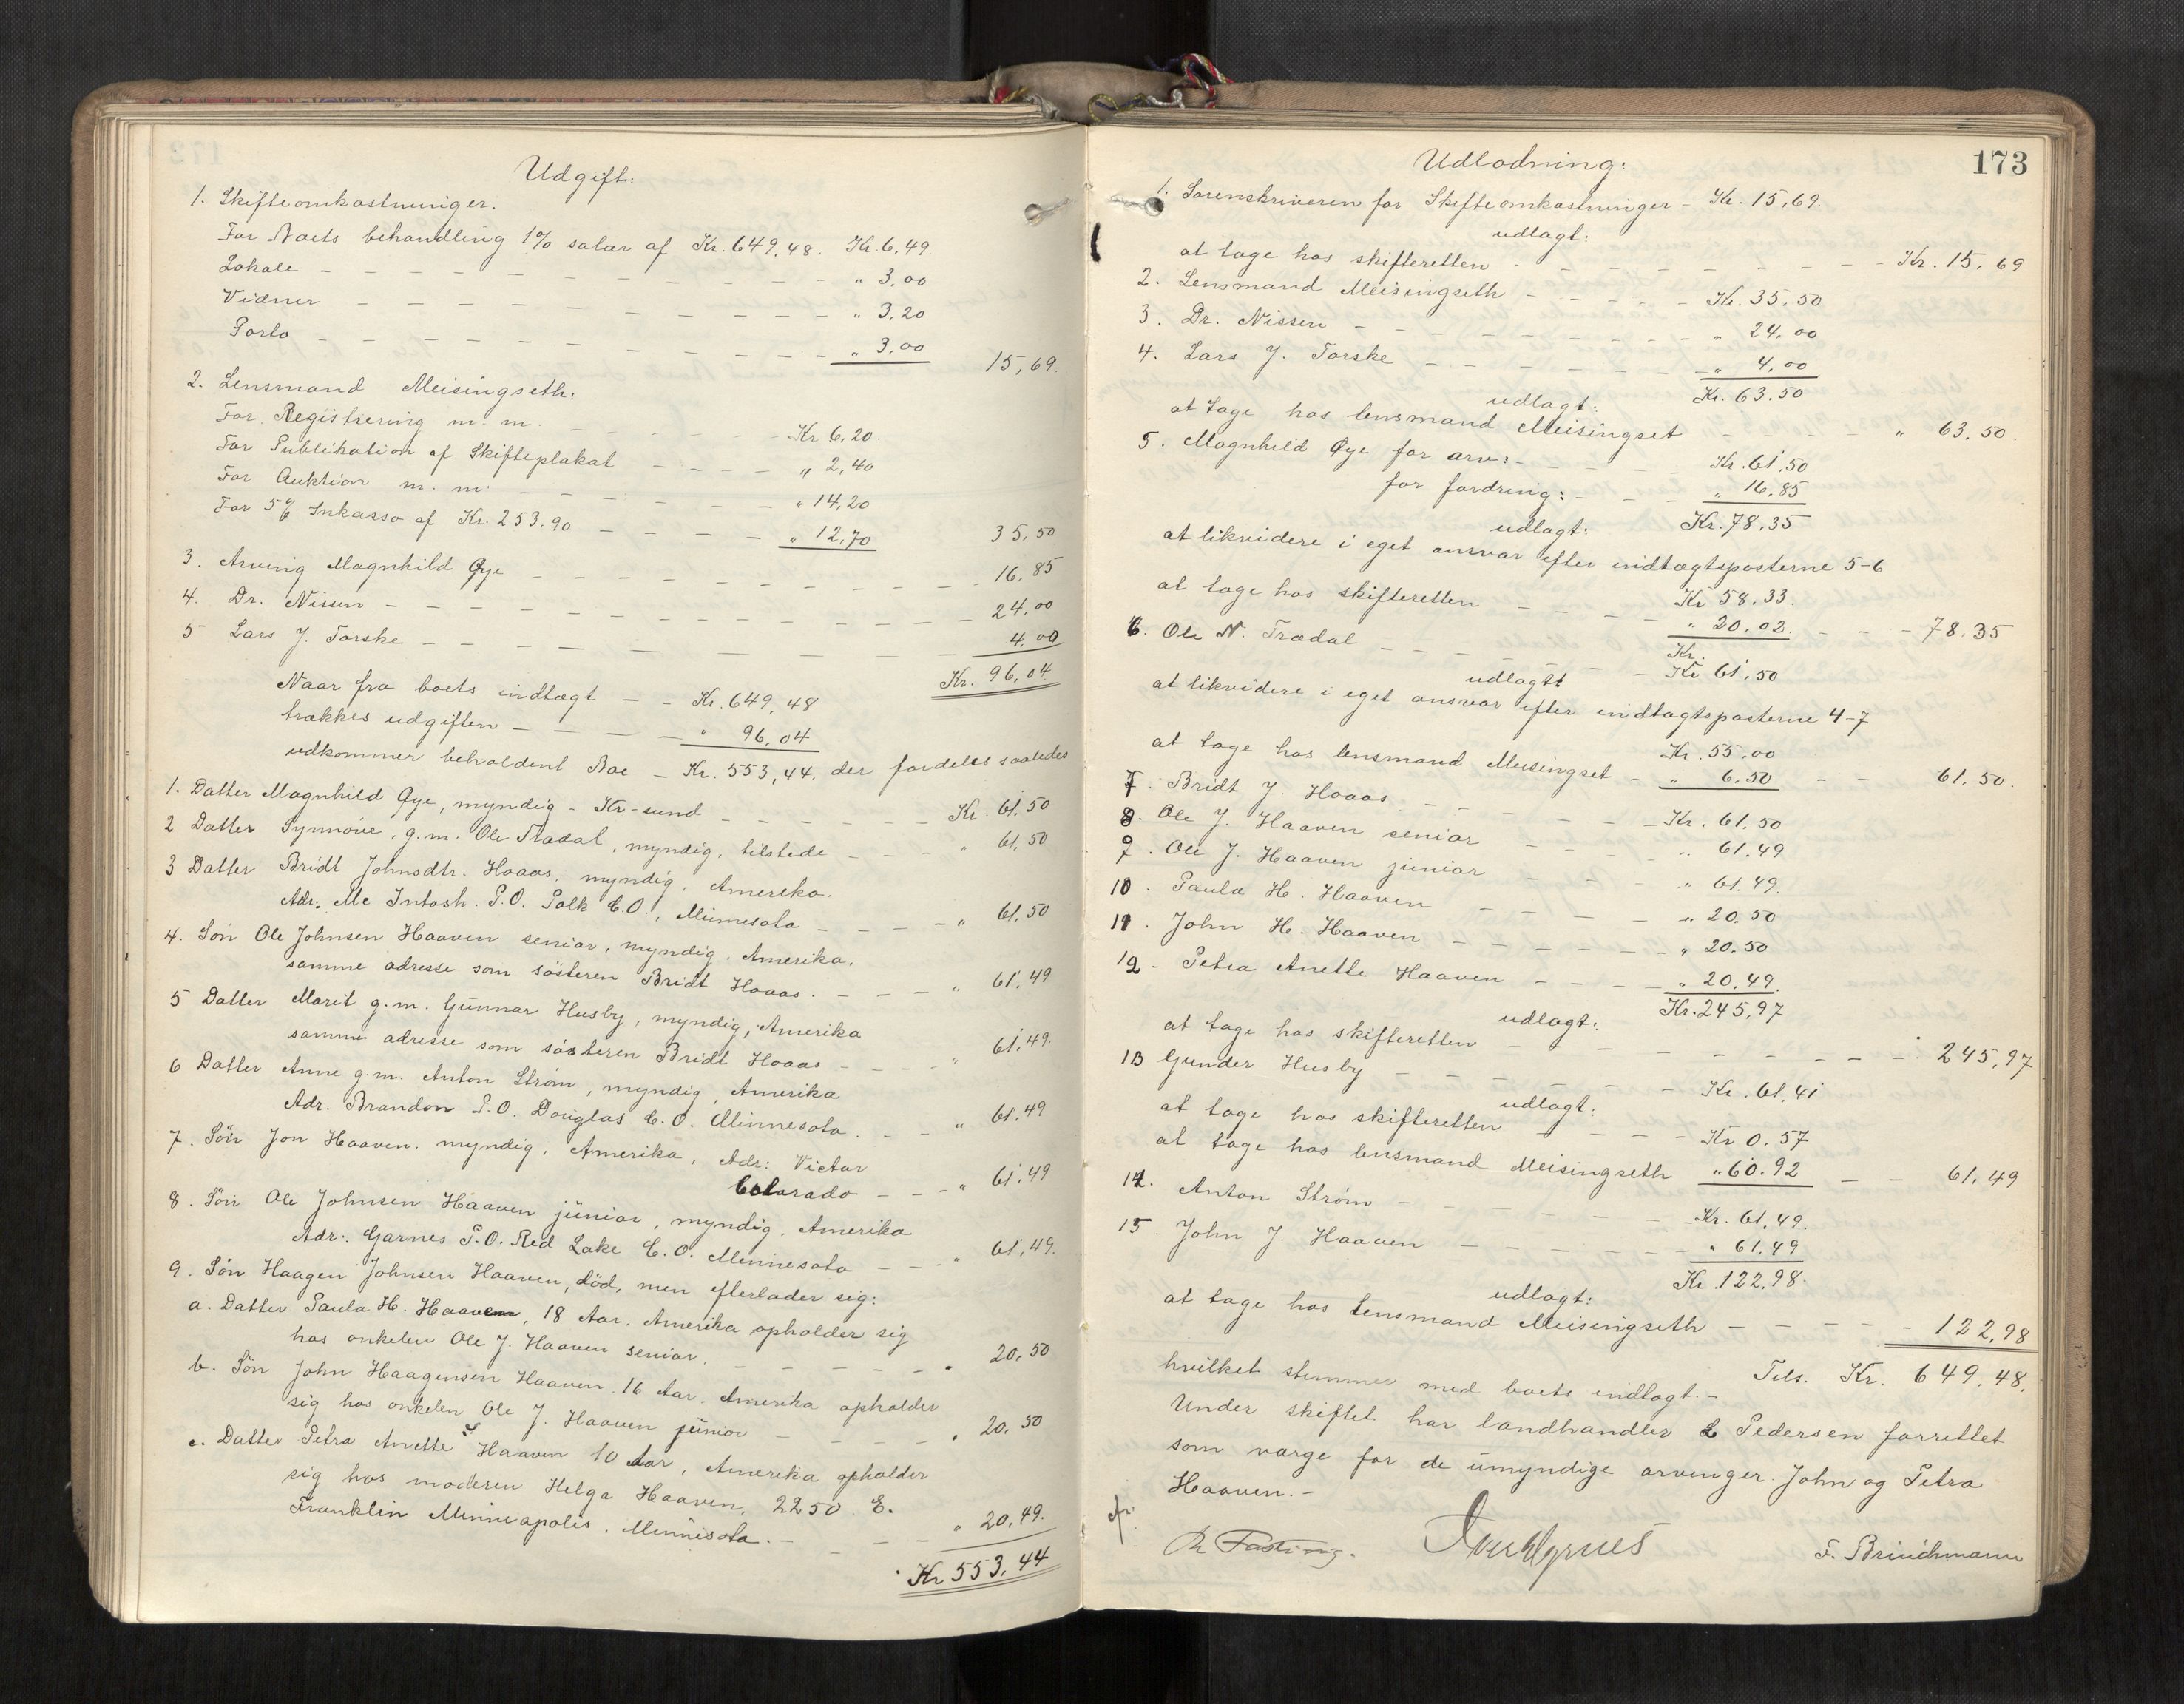 Udgift:
1. Skifteomkostninger.
For Boets behandling 1% salær af Kr. 649,48. Kr. 6,49.
Lokale - - - " 3,00
Vidner - - - " 3,20
Porto - - - " 3,00 15,69.
2. Lensmand Meisingseth:
For Registrering m. m. - - - Kr 6,20.
For Publikation af Skifteplakat - - - " 2,40
For Auktion m. m. - - - " 14,20
For 5% Inkasso af Kr. 253.90 - - - " 12,70 35,50
3. Arving Magnhild Øye - - - 16,85
4. Dr. Nissen - - - 24,00
5 Lars J. Torske - - - 4.00
Kr. 96,04.
Naar fra boets indtægt - - Kr. 649,48
trækkes udgiften - - - " 96,04
udkommer beholdent Boe - Kr. 553,44. der fordeles saaledes
1. Datter Magnhild Øye, myndig - Kr-sund - - - Kr. 61,50
2 Datter Synnöve, g.m. Ole Trædal, myndig, tilstede - - - " 61,50
3 Datter Bridt Johnsdtr. Hoaas, myndig, Amerika.
Adr: Mc Intosh. P.O. Polk C.O., Minnesota - - - " 61,50
4. Søn Ole Johnsen Haaven senior, myndig, Amerika,
samme adresse som sösteren Bridt Hoaas. - - - " 61,49
5 Datter Marit g.m. Gunnar Husby, myndig, Amerika
samme adresse som sösteren Bridt Hoaas - - - " 61,49.
6 Datter Anne g.m. Anton Strøm, myndig, Amerika
Adr. Brandon P.O. Douglas C.O. Minnesota. - - " 61,49
7. Sön Jon Haaven, myndig, Amerika, Adr: Victor
Colorado - - - " 61,49
8. Sön Ole Johnsen Haaven junior, myndig, Amerika
Adr: Garnes P.O. Red Lake C.O. Minnesota - - - " 61,49.
9. Sön Haagen Johnsen Haaven, död, men efterlader sig:
a. Datter Paula H. Haaven, 18 Aar, Amerika opholder sig
hos onkelen Ole J. Haaven senior. - - - " 20,50
b. Sön John Haagensen Haaven 16 Aar, Amerika opholder
sig hos onkelen Ole J. Haaven junior - - - " 20,50
c. Datter Petra Anette Haaven 10 Aar, Amerika opholder
sig hos moderen Helga Haaven, 2250 E.
Franklin Minneapolis, Minnisota. - - - " 20,49.
Kr 553,44
173
Udlodning:
1. Sorenskriveren for Skifteomkostninger - Kr. 15,69.
udlagt:
at tage hos skifteretten - - - Kr. 15,69
2. Lensmand Meisingseth - - - Kr. 35,50
3. Dr. Nissen - - - " 24,00
4. Lars J. Torske - - - " 4,00
Kr. 63.50
udlagt:
at tage hos lensmand Meisingset - - - " 63,50.
5. Magnhild Øye for arv: - - - Kr. 61,50
for fordring: - - - " 16,85
Kr. 78,35
udlagt:
at likvidere i eget ansvar efter indtægtsposterne 5-6
Kr 58.33.
at tage hos skifteretten - - - " 20,02. - - - 78,35
Kr.
6. Ole N. Trædal - - - Kr 61,50
udlagt:
at likvidere i eget ansvar efter indtægtsposterne 4-7
Kr. 55,00
at tage hos lensmand Meisingset - " 6,50 - - 61,50.
7. Bridt J. Hoaas - - - Kr. 61,50
8. Ole J. Haaven senior - - - " 61,49
9. Ole J. Haaven junior - - - " 61,49.
10. Paula H. Haaven - - - " 20,50
11. John H. Haaven - - - " 20.50
12 - Petra Anette Haaven - - - " 20,49.
Kr. 245,97
udlagt:
at tage hos skifteretten - - - " 245,97
13 Gunder Husby - - - Kr. 61,41
udlagt:
at tage hos skifteretten - - - Kr 0.57
at tage hos lensmand Meisingseth " 60.92 - - 61,49
14. Anton Strøm - - - Kr. 61,49.
15. John J. Haaven - - - " 61,49
Kr. 122,98.
udlagt:
at tage hos lensmand Meisingseth - - - 122,98
Tils. Kr. 649,48.
hvilket stemmer med boets indtægt. -
Under skiftet har landhandler L Pedersen forrettet
som værge for de umyndige arvinger John og Petra
Haaven. -
Fasting. F. Brinchmann